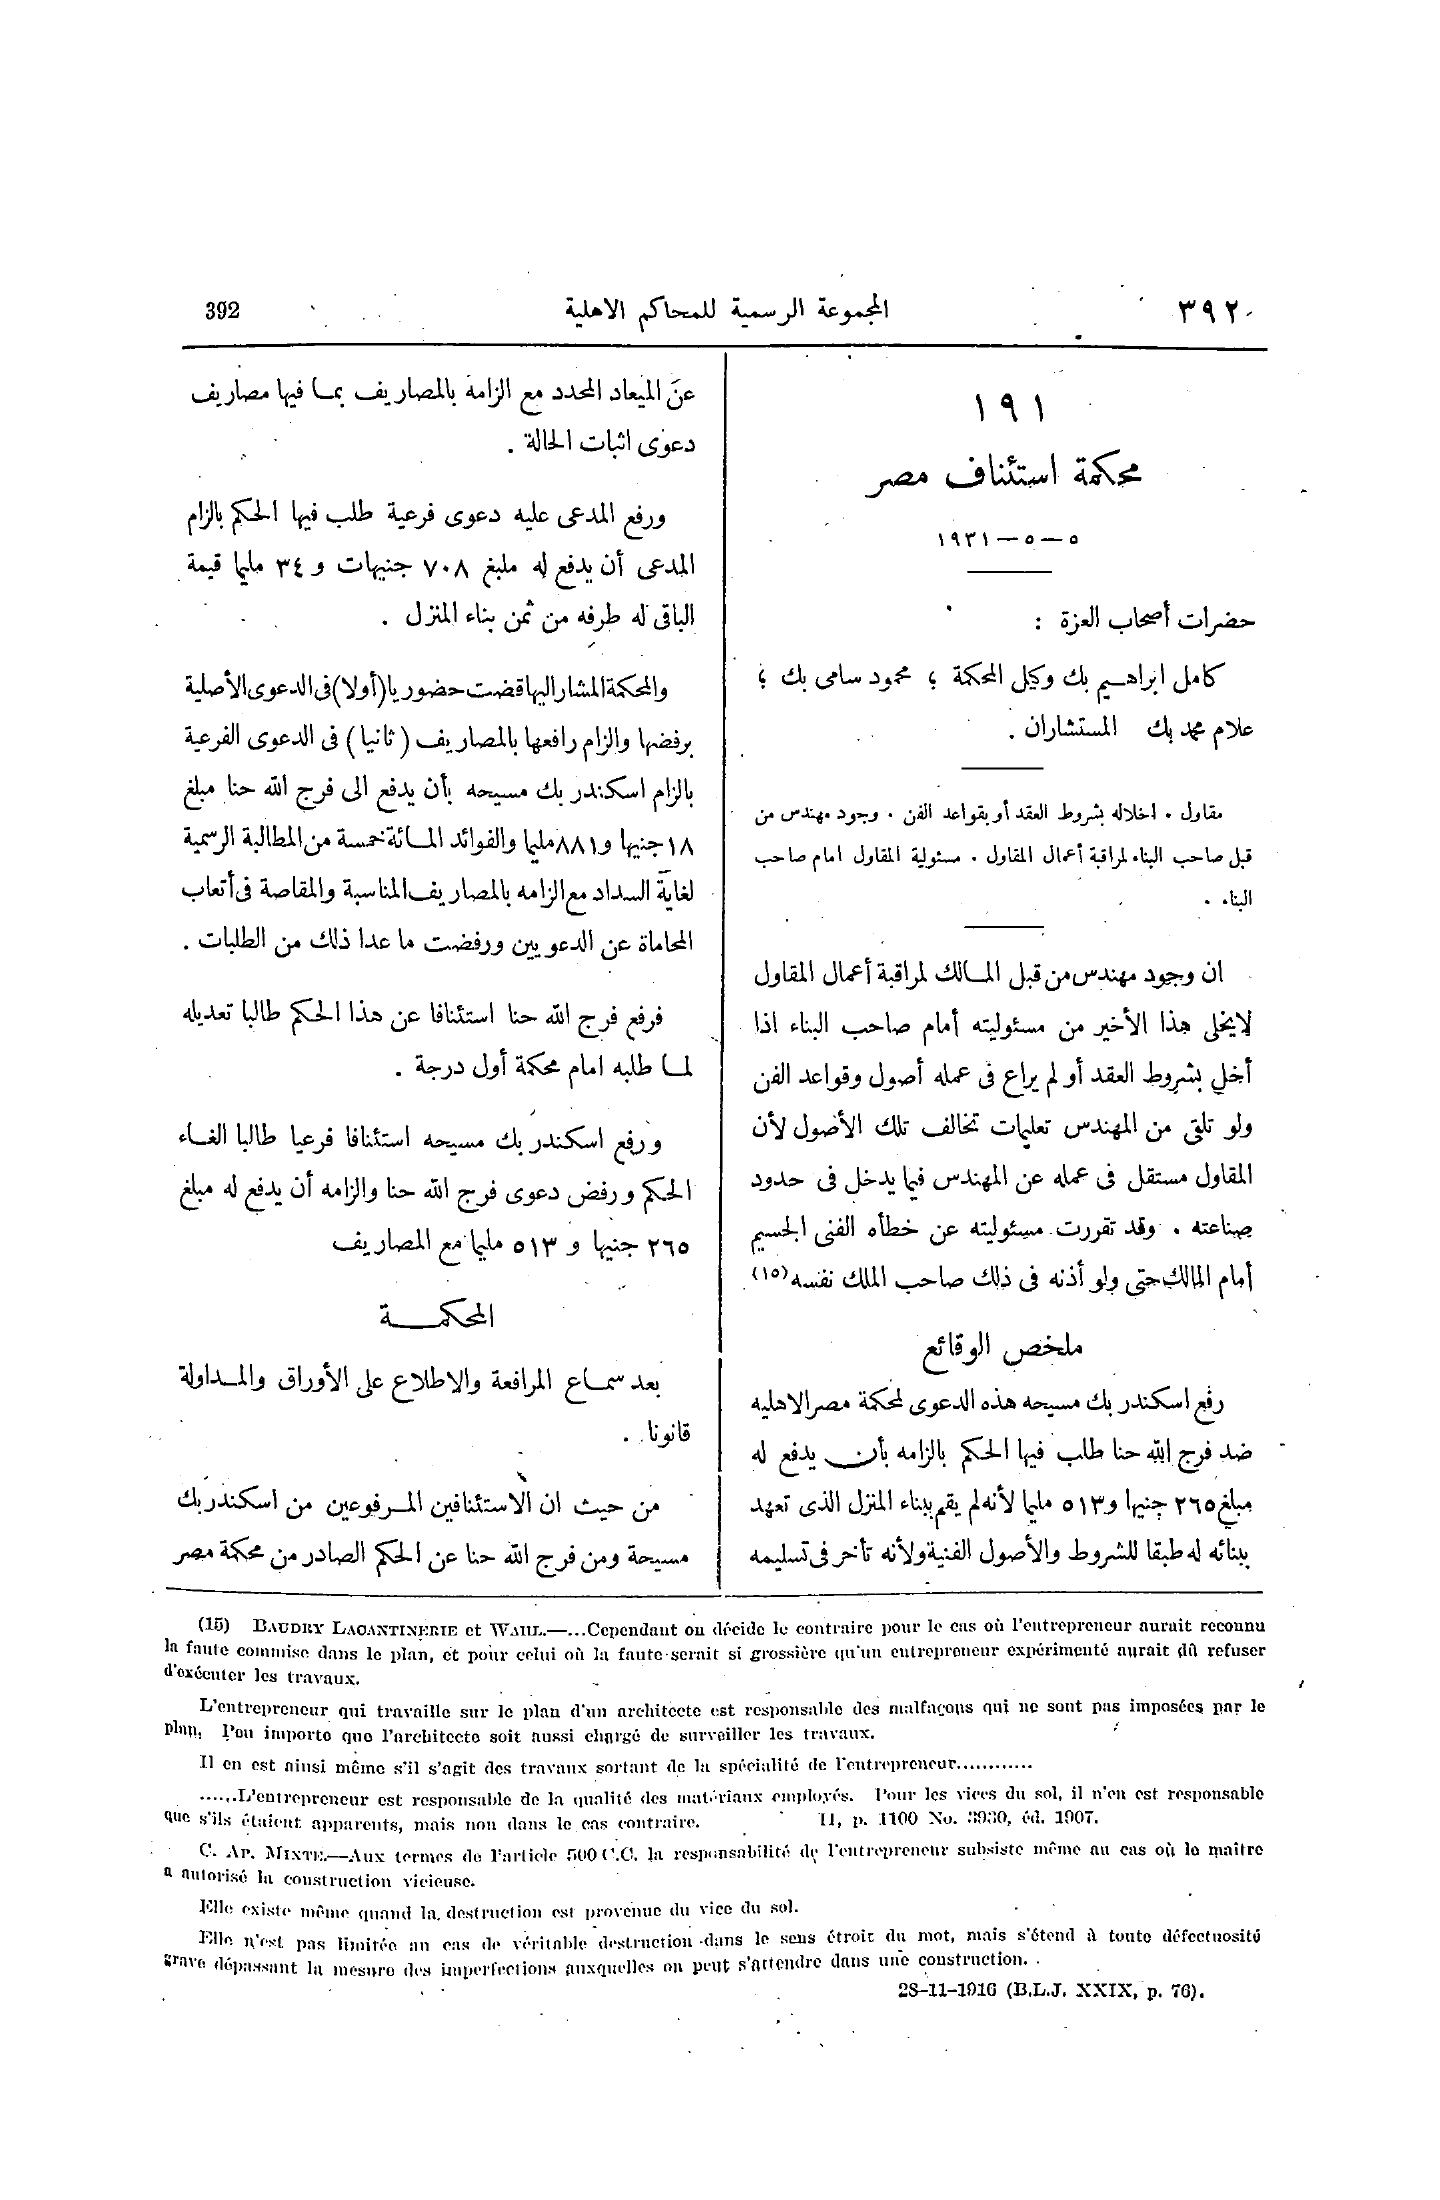 392
المجموعة الرسمية للمحاكم الاهلية
٣٩٢
١٩١
محكمة استئناف مصر
٥ – ٥ – ١٩٣١
حضرات أصحاب العزة :
كامل ابراهيم بك وكيل المحكمة ؛ محمود سامى بك ؛
علام محمد بك المستشاران .
مقاول . اخلاله بشروط العقد أو بقواعد الفن . وجود مهندس من
قبل صاحب البناء لمراقبة أعمال المقاول . مسئولية المقاول امام صاحب
البناء .
ان وجود مهندس من قبل المالك لمراقبة أعمال المقاول
لا يخلى هذا الأخير من مسئوليته أمام صاحب البناء اذا
أخل بشروط العقد أو لم يراع فى عمله أصول وقواعد الفن
ولو تلقى من المهندس تعليمات تخالف تلك الأصول لأن
المقاول مستقل فى عمله عن المهندس فيما يدخل فى حدود
صناعته . وقد تقررت مسئوليته عن خطأه الفنى الجسيم
أمام المالك حتى ولو أذنه فى ذلك صاحب الملك نفسه (١٥)
ملخص الوقائع
رفع اسكندر بك مسيحه هذه الدعوى لمحكمة مصر الاهلية
ضد فرج الله حنا طلب فيها الحكم بالزامه بأن يدفع له
مبلغ ٢٦٥ جنيها و ٥١٣ مليما لأنه لم يقم ببناء المنزل الذى تعهد
ببنائه له طبقا للشروط والأصول الفنية ولأنه تأخر فى تسليمه
عن الميعاد المحدد مع الزامه بالمصاريف بما فيها مصاريف
دعوى اثبات الحالة .
ورفع المدعى عليه دعوى فرعية طلب فيها الحكم بالزام
المدعى أن يدفع له ملبغ ٧٠٨ جنيهات و ٣٤ مليما قيمة
الباقى له طرفه من ثمن بناء المنزل .
والمحكمة المشار اليها قضت حضوريا (أولا) فى الدعوى الأصلية
برفضها والزام رافعها بالمصاريف (ثانيا) فى الدعوى الفرعية
بالزام اسكندر بك مسيحه بأن يدفع الى فرج الله حنا مبلغ
١٨ جنيها و ٨٨١ مليما والفوائد المائة خمسة من المطالبة الرسمية
لغاية السداد مع الزامه بالمصاريف المناسبة والمقاصة فى أتعاب
المحاماة عن الدعويين ورفضت ما عدا ذلك من الطلبات .
فرفع فرج الله حنا استئنافا عن هذا الحكم طالبا تعديله
لما طلبه امام محكمة أول درجة .
ورفع اسكندر بك مسيحه استئنافا فرعيا طالبا الغاء
الحكم ورفض دعوى فرج الله حنا والزامه أن يدفع له مبلغ
٢٦٥ جنيها و ٥١٣ مليما مع المصاريف
المحكمة
بعد سماع المرافعة والاطلاع على الأوراق والمداولة
قانونا .
من حيث ان الاستئنافين المرفوعين من اسكندر بك
مسيحة ومن فرج الله حنا عن الحكم الصادر من محكمة مصر
(15) BAUDRY LACANTINERIE et WAHL.—...Cependant on décide le contraire pour le cas où l'entrepreneur aurait reconnu
la faute commise dans le plan, et pour celui où la faute serait si grossière qu'un entrepreneur expérimenté aurait dû refuser
d'exécuter les travaux.
L'entrepreneur qui travaille sur le plan d'un architecte est responsable des malfaçons qui ne sont pas imposées par le
plan. Peu importe que l'architecte soit aussi chargé de surveiller les travaux.
Il en est ainsi même s'il s'agit des travaux sortant de la spécialité de l'entrepreneur............
......L'entrepreneur est responsable de la qualité des matériaux employés. Pour les vices du sol, il n'en est responsable
que s'ils étaient apparents, mais non dans le cas contraire. II, p. 1100 No. 3930, éd. 1907.
C. AP. MIXTE.—Aux termes de l'article 500 C.C. la responsabilité de l'entrepreneur subsiste même au cas où le maître
a autorisé la construction vicieuse.
Elle existe même quand la destruction est provenue du vice du sol.
Elle n'est pas limitée au cas de véritable destruction dans le sens étroit du mot, mais s'étend à toute défectuosité
grave dépassant la mesure des imperfections auxquelles on peut s'attendre dans une construction.
28-11-1916 (B.L.J. XXIX, p. 76).